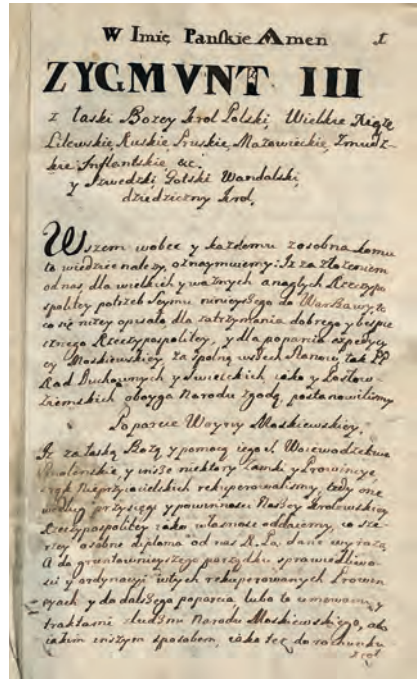 W Imię Pańskie Amen 1
ZYGMVNT III
z łaski Bozey Krol Polski, Wielkie Xiąże
Litewskie, Ruskie, Pruskie, Mazowieckie, Zmudz-
kie Inflantskie &c.
y Szwedzki Gotski Wandalski
dziedziczny Krol.
Wszem wobec y każdemu zosobna komu
to wiedzieć należy, oznaymuiemy: Iż za złożeniem
od nas dla wielkich y ważnych a nagłych Rzeczypo
spolitey potrzeb Seymu ninieyszego do Warszawy, to
co się niżey opisało dla zatrzymania dobrego y bespie
cznego Rzeczypospolitey, y dla poparcia expedycy
cy Moskiewskiey za spolną wszech Stanow, tak PP
Rad Duchownych y Swieckich iako y Posłow
Ziemskich oboyga Narodu zgodą, postanowilismy
Poparcie Woyny Moskiewskiey.
Iż za łaską Bożą y pomocą iego S. Woiewodztwo
Smolenskie, y insze niektory Zamki y Prowincye
z rąk Nieprzyiacielskich rekuperowalismy, tedy one
według przysięgi y powinnosci Naszey Krolewskiey
Rzeczypospolitey iako własnosc oddaiemy, co sze-
rzey osobne diploma od nas R. Pa. dane wyraża
A do gruntownieyszego porządku sprawiedliwo
sci y ordynacyi wtych rekuperowanych Prowin
cyach y do dalszego poparcia lubo to umowami y
traktami z ludzmi Narodu Moskiewskiego, abo
iakim inszym sposobem, iako też do rachunku